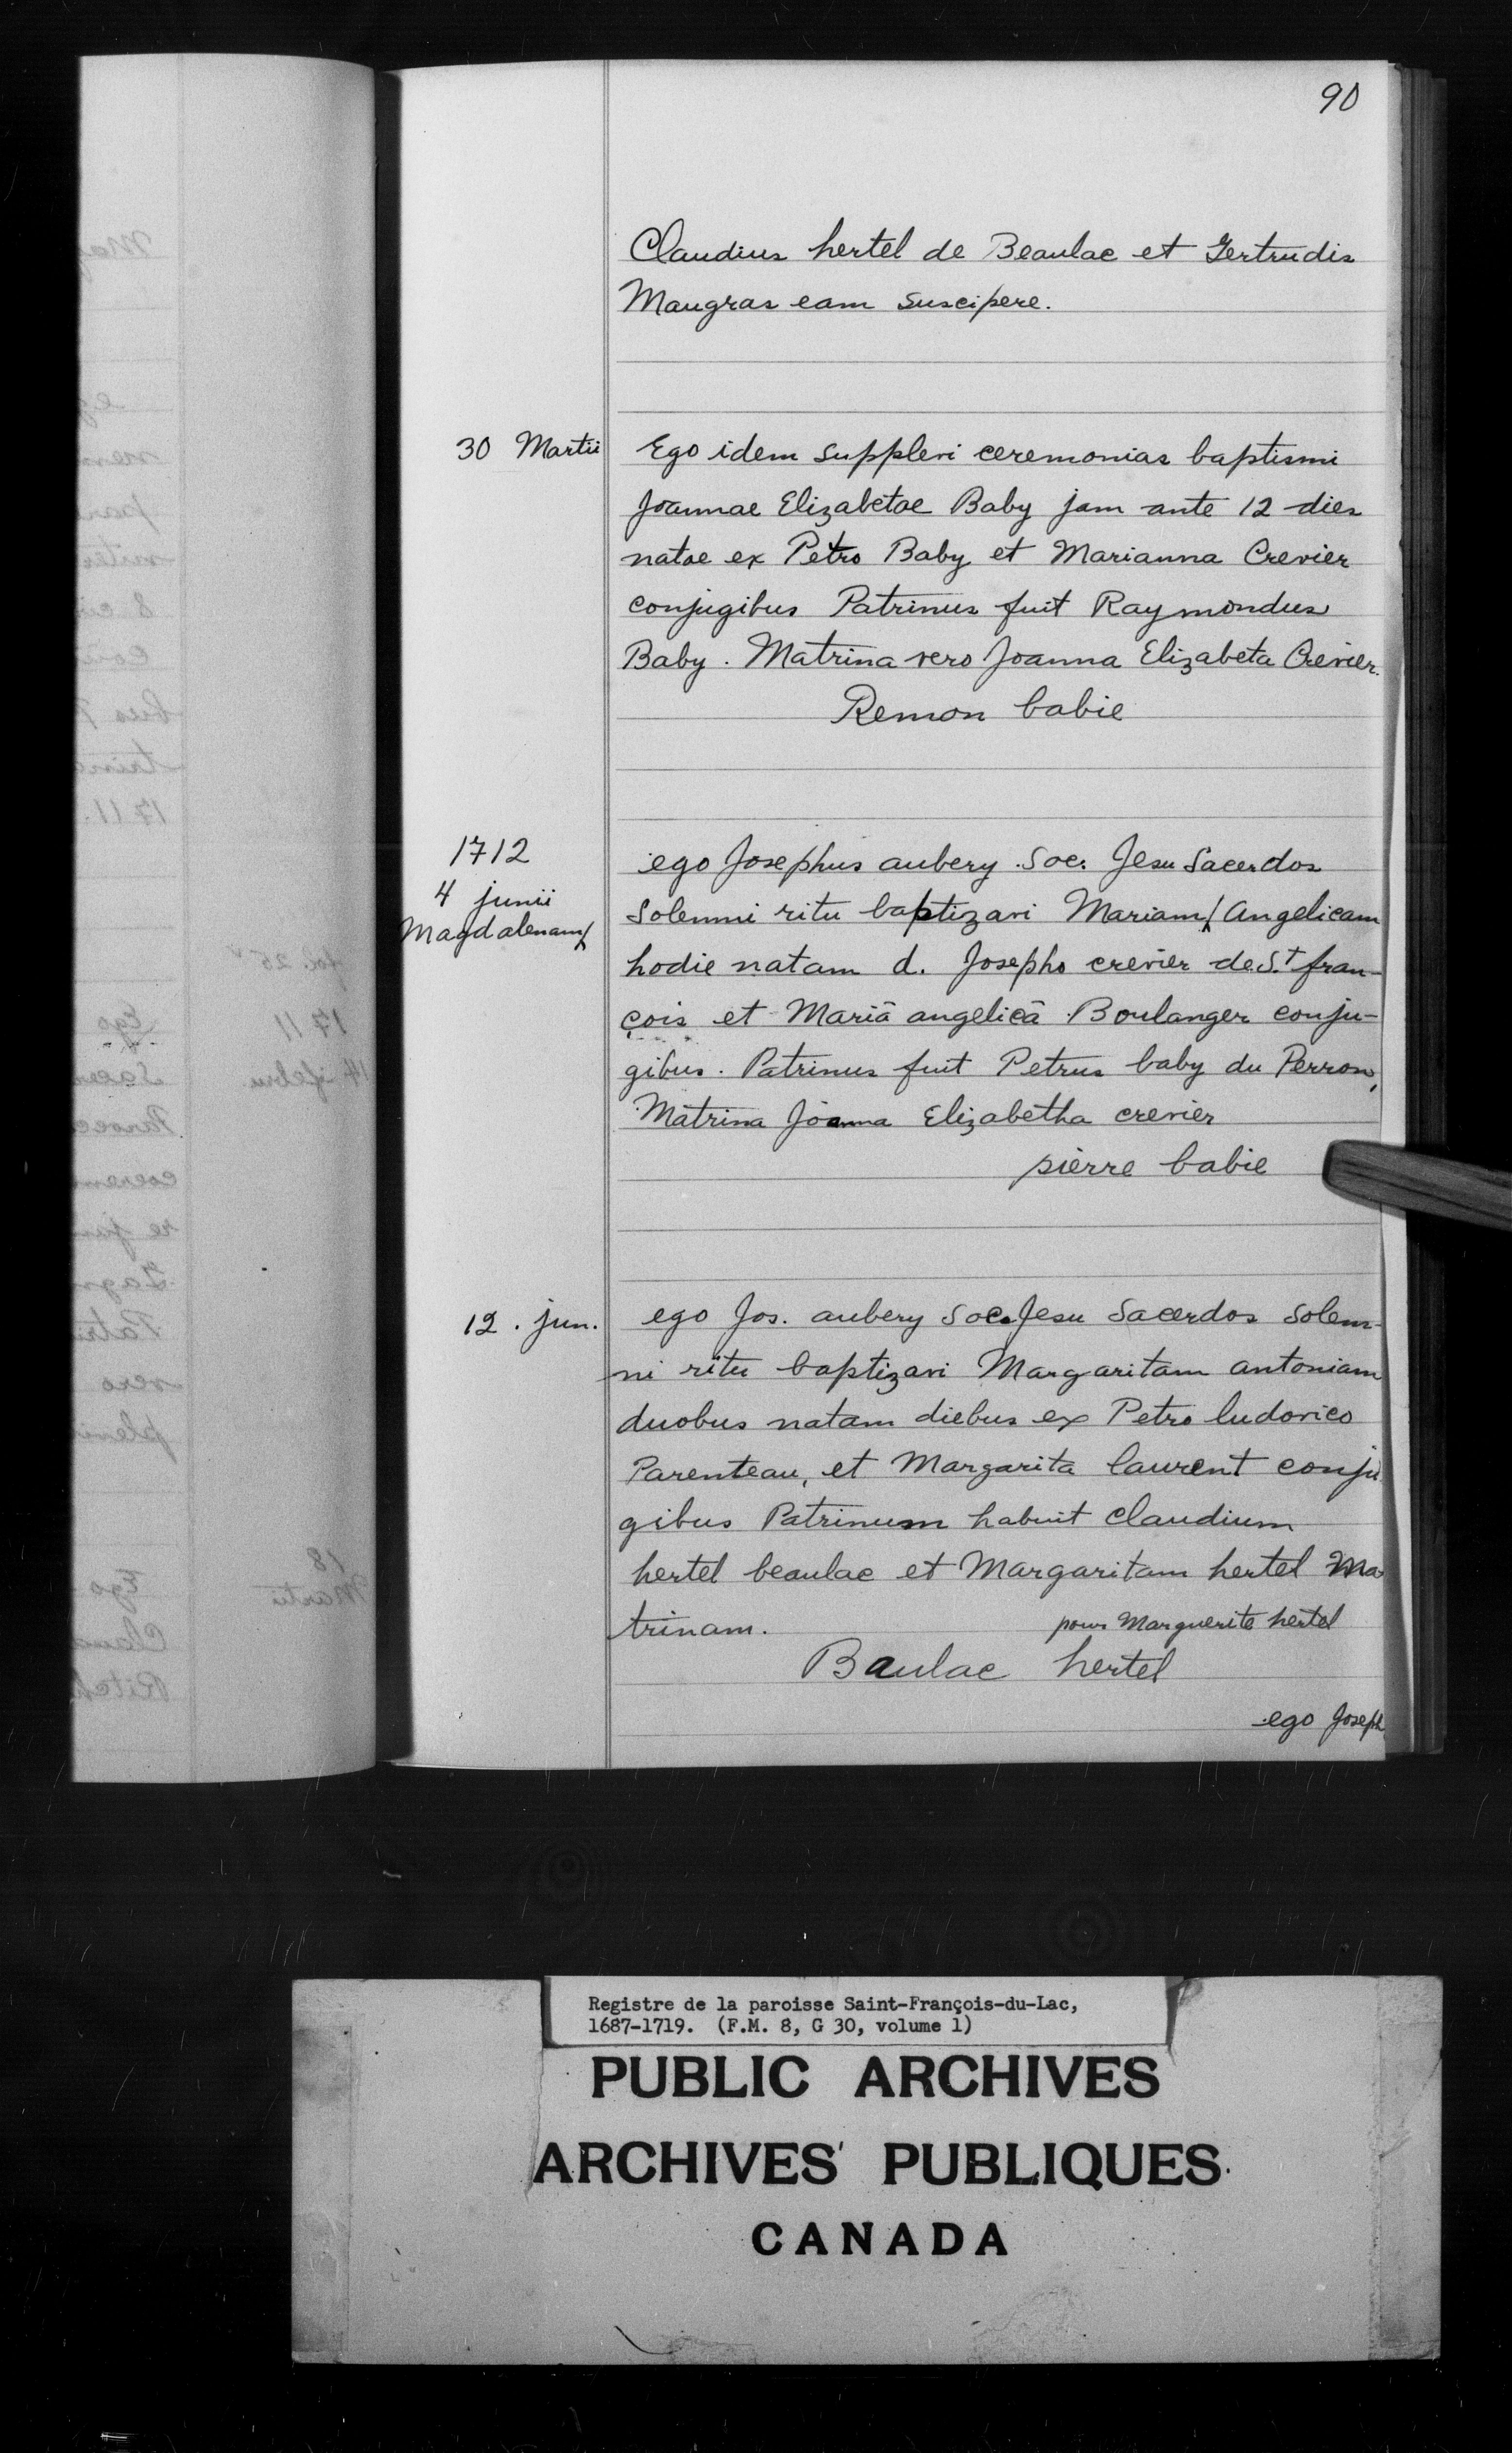 90
Claudius hertel de Beaulac et Gertrudis
Maugras eam suscipere.
30 Martii
Ego idem supplevi ceremonias baptismi
Joannae Elizabetae Baby jam ante 12 dies
natae ex Petro Baby et Marianna Crevier
conjugibus Patrinus fuit Raymondus
Baby. Matrina vero Joanna Elizabeta Crevier.
Remon babie
1712
4 junii
Magdalenam/
ego Josephus aubery Soc. Jesu Sacerdos
Solemni ritu baptizavi Mariam/ Angelicam
hodie natam d. Josepho crevier de St fran-
çois et Mariâ angelicâ Boulanger conju-
gibus. Patrinus fuit Petrus baby du Perron,
Matrina Joanna Elizabetha crevier
pierre babie
12. jun.
ego Jos. aubery Soc. Jesu Sacerdos Solem-
ni ritu baptizavi Margaritam antoniam
duobus natam diebus ex Petro ludovico
Parenteau, et Margarita laurent conju
gibus Patrinum habuit claudium
hertel beaulac et Margaritam hertel Ma-
trinam.
pour Marguerite hertel
Baulac hertel
ego Joseph
fol. 25 v
1711
14 febru
18
Martii
Registre de la paroisse Saint-François-du-Lac,
1687-1719. (F.M. 8, G 30, volume 1)
PUBLIC ARCHIVES
ARCHIVES PUBLIQUES
CANADA